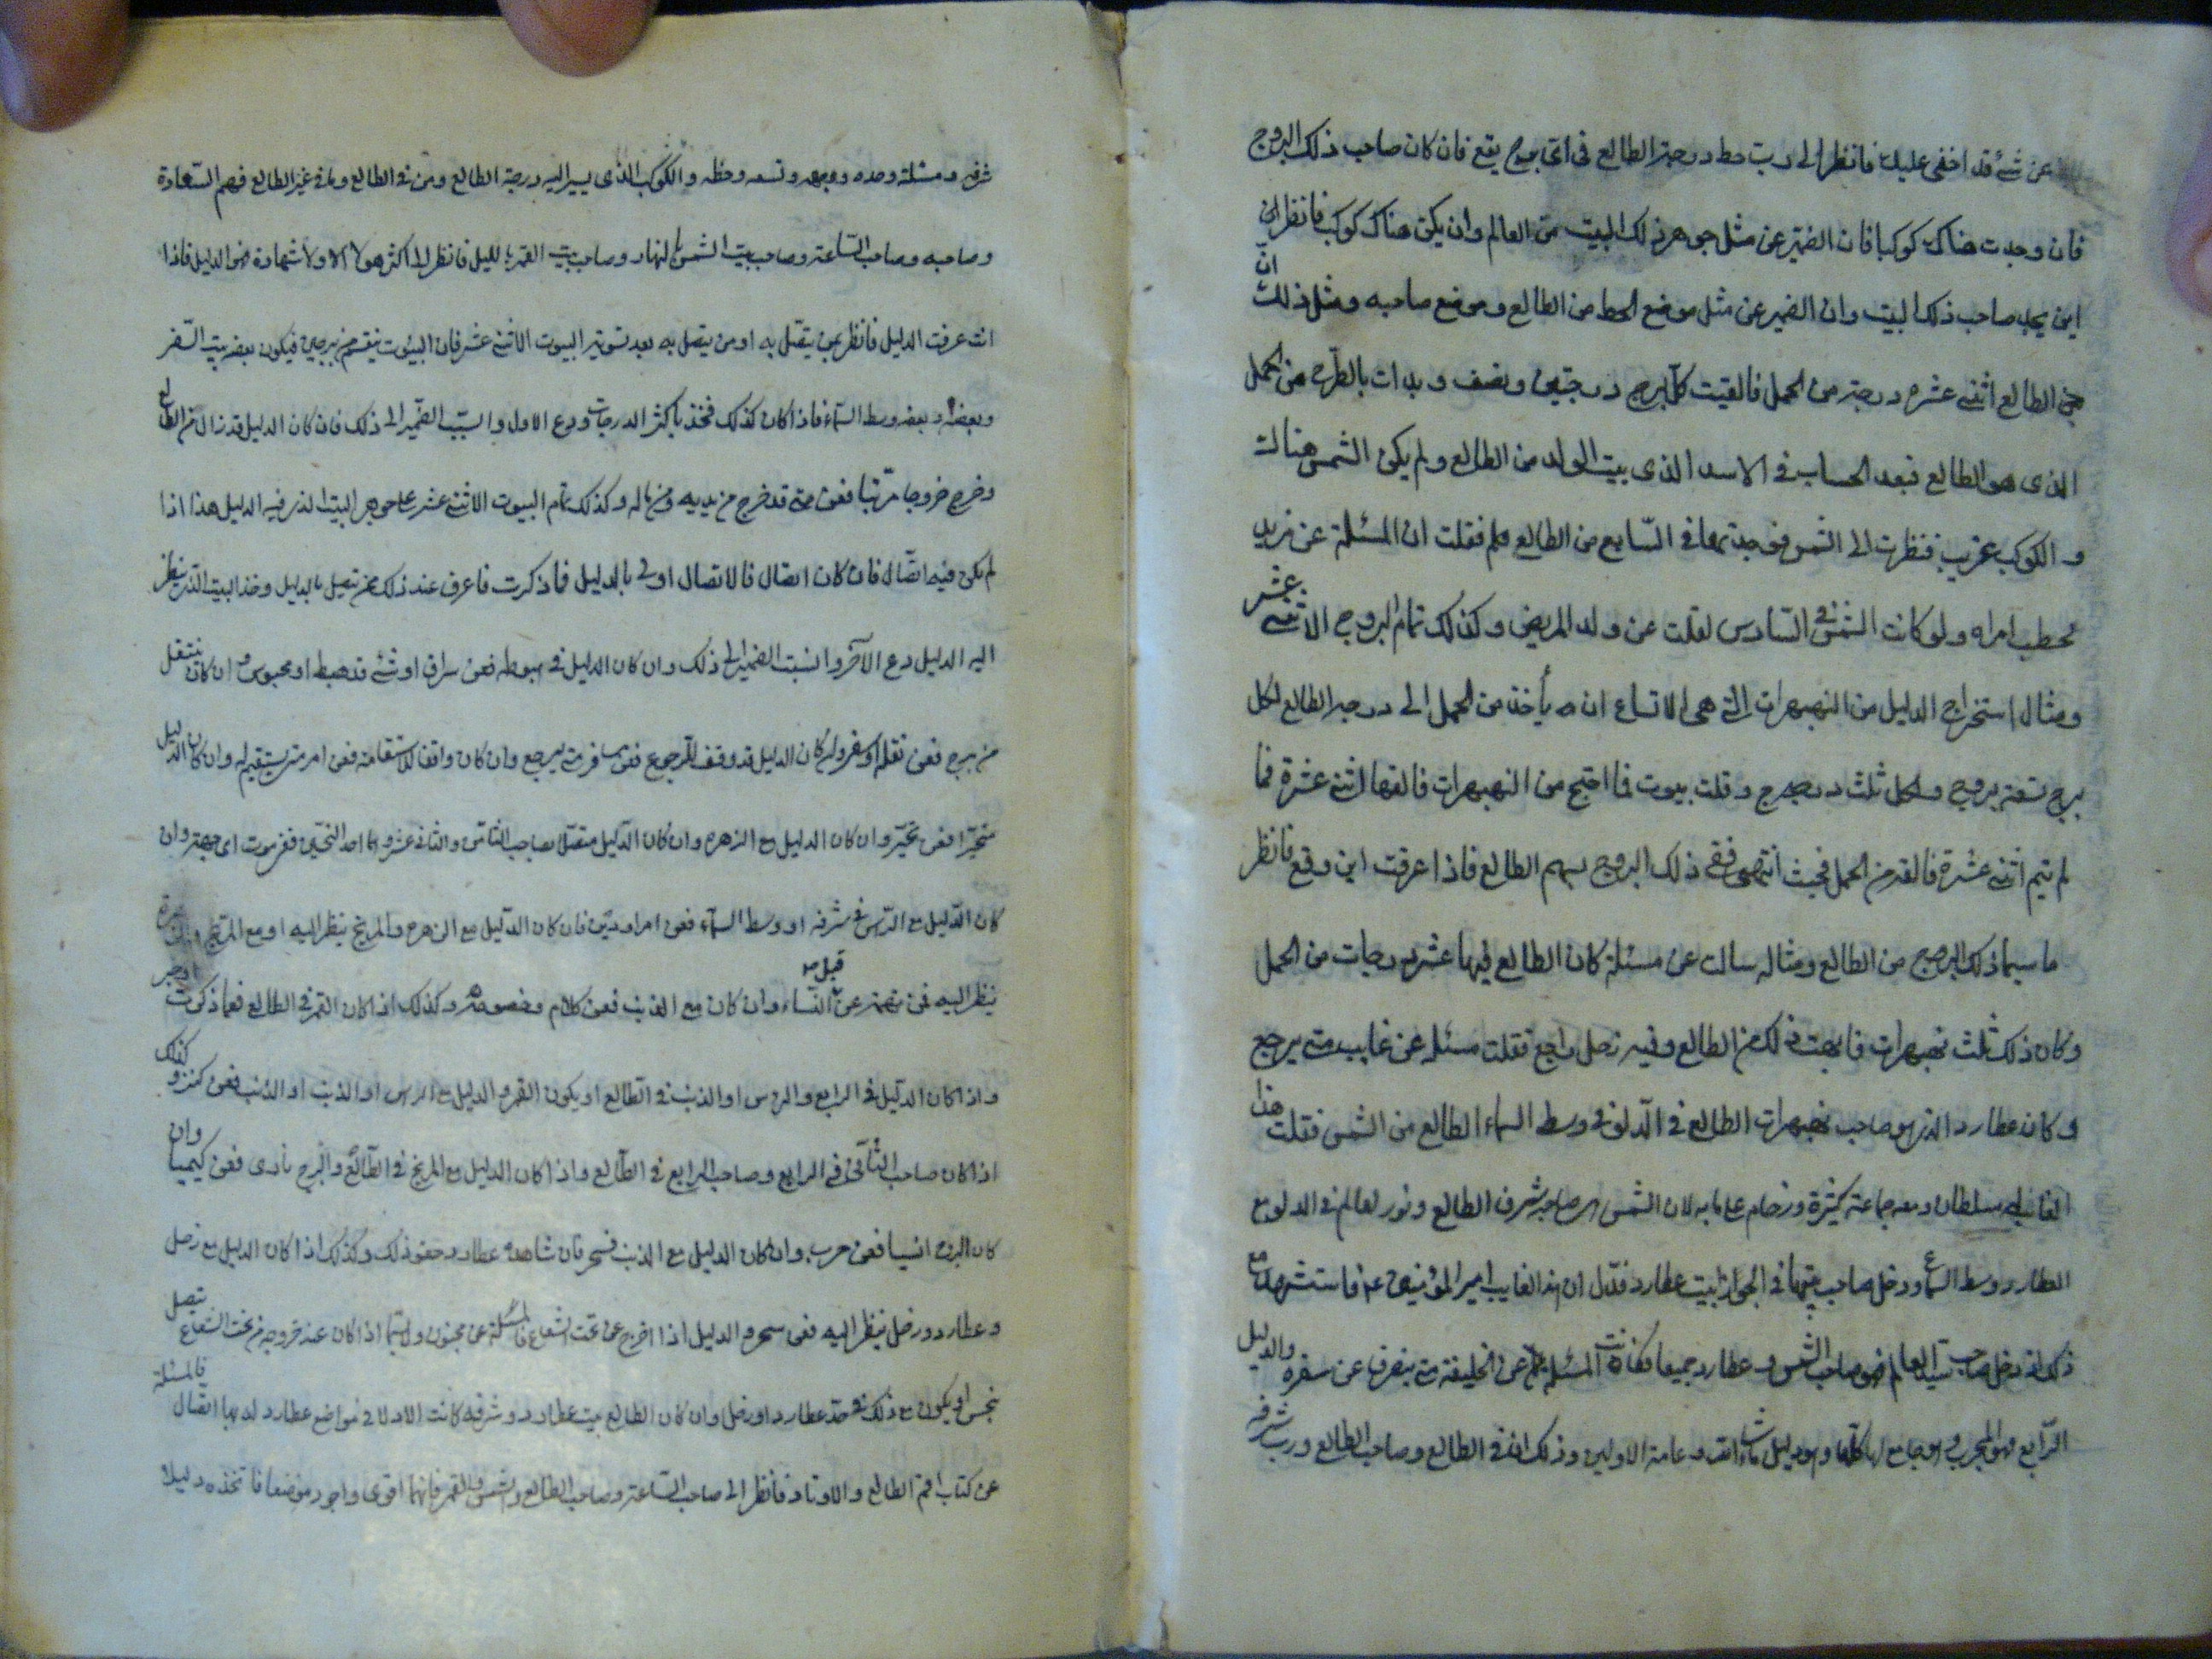 عن شئ قد اخفى عليك فانظر الى رب حط درجة الطالع فى اى برج يقع فان كان صاحب ذلك البروج
فان وجدت هناك كوكبا فان الضمير عن مثل جوهر ذلك البيت من العالم وان يكن هناك كوكب فانظر الى
اين يحل صاحب ذلك البيت وان الضمير عن مثل موضع الحط من الطالع وموضع صاحبه ومثل ذلك ان
من الطالع اثنى عشره درجة من الحمل فالقيت كل برج درجتين ونصف وبدات بالطرح من الحمل
الذى هو الطالع فبعد الحساب فى الاسد الذى بيت الولد من الطالع ولم يكن الشمس هناك
و الكوكب غريب فنظرت الى الشمس فوجدتها فى السابع من الطالع فقلت ان المسئلة عن
يخطب امراه ولو كانت الشمس فى السادس لقلت عن ولد المريض وكذلك تمام البروج الاثنى عشر
ومثال استخراج الدليل من النهبهرات التى هى الاتساع ان يأخذ من الحمل الى درجة الطالع لكل
برج تسعة بروج ولكل ثلث درجه وقلت بيوت فما اجتمع من النهبهرات فالقها اثنى عشرة فما
لم يتم اثنى عشرة فالقه من الحمل فحيث انتهى ففى ذلك البروج سهم الطالع فاذا عرفت اين وقع فانظر
ما سيما ذلك البرج من الطالع ومثاله سالك عن مسئلة كان الطالع فيها عشر درجات من الحمل
وكان ذلك ثلث نهبهرات من الطالع وفيه زحل راجع فقلت مسئله عن غايب متى يرجع
وكان عطارد الذى هو صاحب نهبهرات الطالع فى الدلو فى وسط السماء الطالع من الشمس فقلت هذا
الغايب سلطان ومعه جماعة كثيرة لان الشمس صاحب شرف الطالع ونور العالم فى الدلو مع
العطارد وسط السماء ودخل صاحب بيتها فى الجوزا بيت عطارد فدل ان هذا الغايب امير المؤمنين فاستشهد مع
ذلك صاحب الشمس و عطارد جميعا فكانت المسئلة عن الخليفة متى ينصرف عن سفره والدليل
الرابع هو المجرب وهو جامع لها كلها وهو دليل ما شاء الله وعامة الاولين وذلك ان فى الطالع وصاحب الطالع ورب شرفه
شرفه ومثلثة وحده ووجهه وتسعه وحظه والكوكب الذى يسير اليه درجة الطالع ومن فى الطالع وما فى غير الطالع فسهم السعادة
وصاحبه وصاحب الساعة وصاحب بيت الشمس بالنهار وصاحب بيت القمر بالليل فانظر الى اكثر هولاء شهادة فهو الدليل فاذا
انت عرفت الدليل فانظر بمن يتصل به او من يتصل به بعد تسوية البيوت الاثنى عشر فان البيوت ينقسم من برجين فيكون بعضه بيت السفر
وبعضه وسط السماء فاذا كان كذلك فخذ باكثر الدرجات ودع الاول وانسب الضمير الى ذلك فان كان الدليل قد زال من الطالع
وخرج خروجا قريبا فعن متى قد خرج من يديه من ماله وكذلك تمام البيوت الاثنى عشر على جوهر البيت الذى فيه الدليل هذا اذا
لم يكن فيه اتصال فان كان اتصال فالاتصال اولى بالدليل فما ذكرت فاعرف عند ذلك من يتصل بالدليل وخذ البيت الذى ينظر
اليه الدليل ودع الآخر وانسب الضمير الى ذلك وان كان الدليل فى هبوطه فعن سراق او شئ قد هبط او محبوس وان كان ينتقل
من برج فعن نقله او سفر وان كان الدليل قد وقف للرجوع فعن مسافر متى يرجع وان كان واقفا للاستقامة فعن امر متى يستقيم له وان كان الدليل
متحيرا فعن تحير وان كان الدليل مع الزهره وان كان الدليل متصلا بصاحب الثامن والثانى عشر احد النحسين فعن موت اى جهة وان
كان الدليل مع الراس فى شرفه او وسط السماء فعن امر او دين فان كان الدليل مع الزهره والمريخ ينظر اليه او مع المريخ والزهرة
ينظر اليه فعن تهمة عن قبل النساء وان كان مع الذنب فعن كلام وخصومة وكذلك اذا كان القمر فى الطالع فعما ذكرت
واذا كان الدليل فى الرابع والراس او الذنب فى الطالع او يكون القمر والدليل مع الراس او الذنب فعن كنز وكذلك
اذا كان صاحب الثانى فى الرابع وصاحب الرابع فى الطالع واذا كان الدليل مع المريخ فى الطالع والبرج نارى فعن كيميا وان
كان البرج انسيا فعن حرب وان كان الدليل مع الذنب فسحر فان شاهده عطارد حقق ذلك وكذلك اذا كان الدليل مع زحل
وعطارد وزحل ينظر اليه فعن سحر والدليل اذا اخرج عن تحت الشعاع فالمسئلة عن مجنون ولاسيما اذا كان عند خروجه من تحت الشعاع يتصل
بنحس او يكون مع ذلك فى حد عطارد او زحل وان كان الطالع بيت عطارد وشرفه كانت الادلا فى مواضع عطارد لديها اتصال فالمسئلة
عن كتاب الطالع والاوتاد فانظر الى صاحب الساعة وصاحب الطالع والشمس والقمر فانها اقوى واجود موضعا فاتخذه دليلا